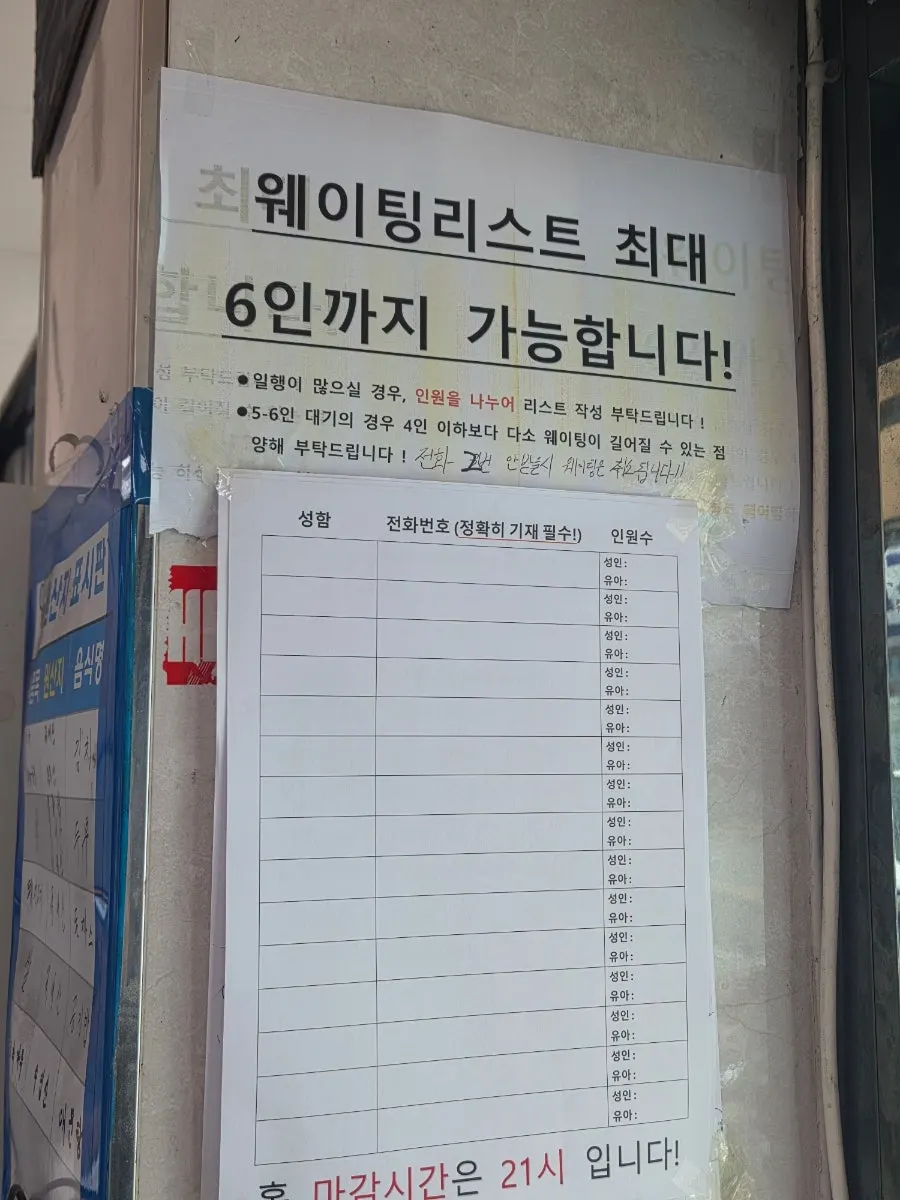 웨이팅리스트 최대
6인까지 가능합니다!
●일행이 많으실 경우, 인원을 나누어 리스트 작성 부탁드립니다 !
●5-6인 대기의 경우 4인 이하보다 다소 웨이팅이 길어질 수 있는 점
양해 부탁드립니다 ! 전화 2번 안받을시 웨이팅은 취소됩니다!!
성함 전화번호 (정확히 기재 필수!) 인원수
성인:
유아:
성인:
유아:
성인:
유아:
성인:
유아:
성인:
유아:
성인:
유아:
성인:
유아:
성인:
유아:
성인:
유아:
성인:
유아:
성인:
유아:
성인:
유아:
성인:
유아:
성인:
유아:
성인:
유아:
홀 마감시간은 21시 입니다!
원산지 표시판
품목 원산지 음식명
김치